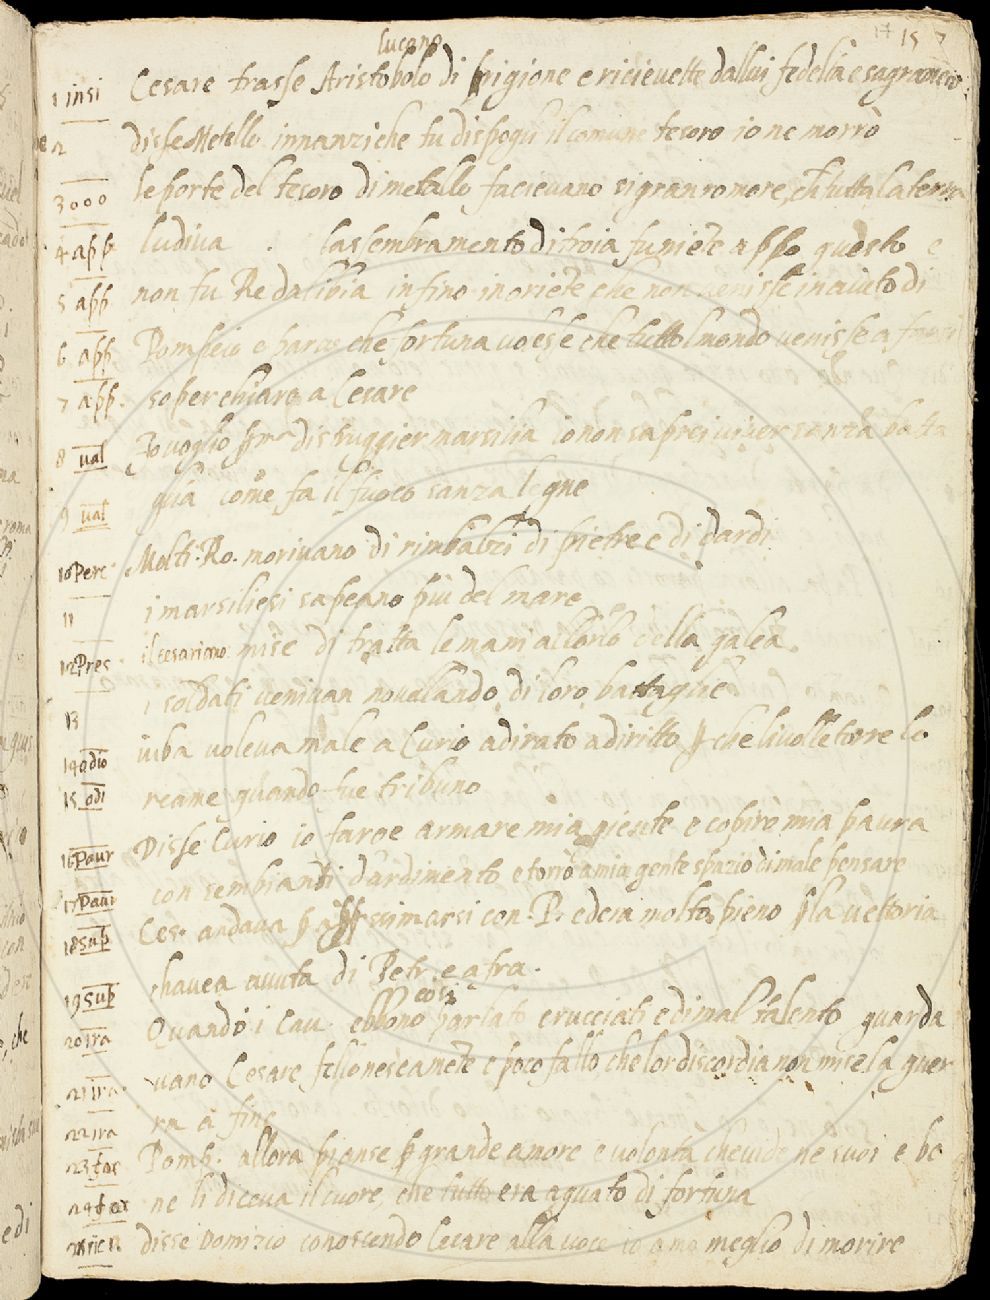 17 15 7
lucano
1 insi Cesare trasse Aristobolo di prigione e ricievette dallui fedelta e sagramento
2 disse Metello innanzi che tu dispogli il comune tesoro io ne morrò
3 000 le porte del tesoro di metallo facievano si gran romore, che tutta la terra
4 app ludiva . lassembramento di troia fu niete appo questo e
5 app non fu Re da libia infino in oriete che non venisse in aiuto di
6 app Pompeio e parve che fortuna volesse che tuttolmondo venisse a
7 app. soperchiare a Cesare
8 val Io voglio prª distruggier marsilia io non saprei viver sanza batta
9 val glia come fa il fuoco sanza legne
10 Perc Molti Ro. morivano di rimbalzi di pietre e di dardi.
11 i marsiliesi sapeano piu del mare
12 Pres il cesariano mise di tratta le mani allorlo della galea.
13 i soldati venivan novelando di loro battaglie
14 odio iuba voleva male a Curio adirato a diritto p che livolle torre lo
15 odi reame quando fue tribuno
16 Paur Disse Curio io faroe armare mia giente e coviro mia paura
17 Paur con sembianti d'ardimento e torrò a mia gente spazio di male pensare
18 sup Ces. andava p appssimarsi con. P. ed era molto pieno p la vettoria
19 sup chavea avuta di Petr. e afra.
cosi
20 ira Quando i Cav. ebbono parlato crucciati e di mal talento guarda
21 ira vano Cesare fellonescamete e poco fallo che lor discordia non mise la guer
22 ira ra a fine
23 for Pomp. allora pianse p grande amore e volonta che vide ne suoi e be
24 for ne li diceva il cuore, che tutto era aguato di fortuna
25 ricn disse Domizio conoscendo Cesare alla voce io amo meglio di morire